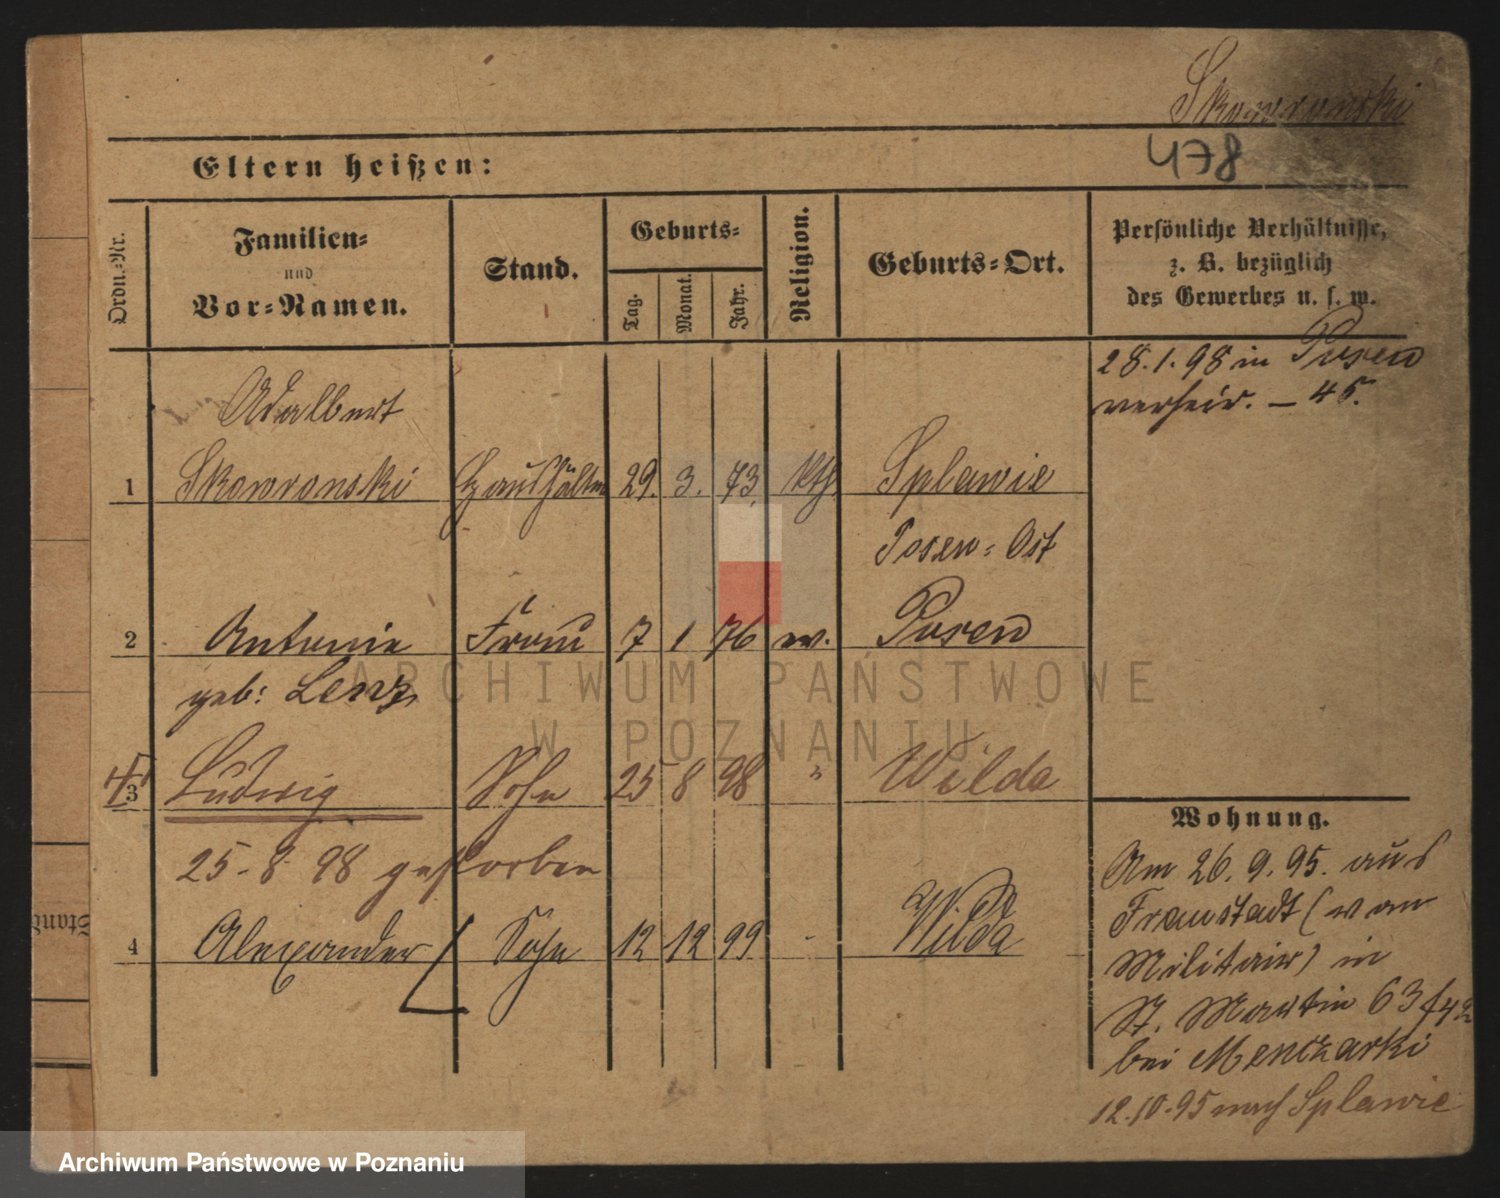 Skowronski
478
Eltern heißen:
Ordn.-Nr.
Familien-
und
Vor-Namen.
Stand.
Geburts-
Tag.
Monat.
Jahr.
Religion.
Geburts-Ort.
Persönliche Verhältnisse,
z. B. bezüglich
des Gewerbes u. s. w.
28.1.98 in Posen
verheir. – 45.
Adalbert
1 Skowronski Haushälter 29. 3. 73. kth Splawie
Posen-Ost
2 Antonie Frau 7 1 76 Posen
geb: Lenz
3 Ludwig Sohn 25 8 98 " Wilda
25-8 98 gestorben
4 Alexander Sohn 12 12 99 - Wilda
Wohnung.
Am 26.9.95. aus
Fraustadt (vom
Militair) in
St. Martin 63
bei Menczarki
12.10.95 nach Splawie
Stand
ARCHIWUM PAŃSTWOWE
W POZNANIU
Archiwum Państwowe w Poznaniu